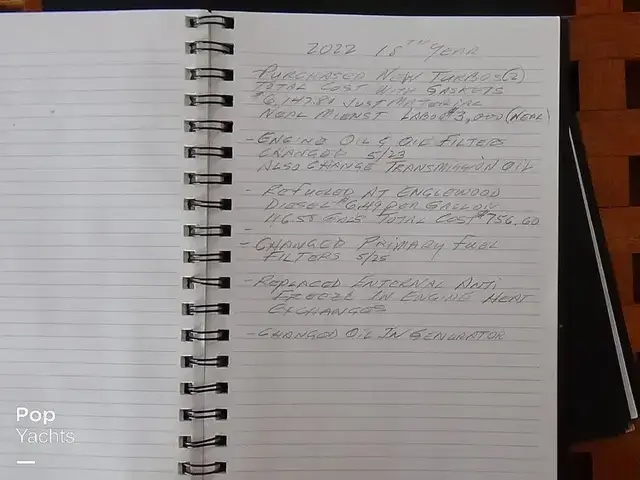 2022 18TH YEAR
- PURCHASED NEW TURBOS (2)
TOTAL COST WITH GASKETS
$6,147.80 JUST MATERIAL
NEAL MIENST LABOR $3,000 (NEAL)
- ENGINE OIL & OIL FILTERS
CHANGED 5/23
ALSO CHANGE TRANSMISSION OIL
- REFUELED AT ENGLEWOOD
DIESEL $6.49 PER GALLON
116.58 GALS TOTAL COST $756.60
-
- CHANGED PRIMARY FUEL
FILTERS 5/25
- REPLACED ENTERNAL ANTI
FREEZE IN ENGINE HEAT
EXCHANGES
- CHANGED OIL IN GENERATOR
Pop
Yachts